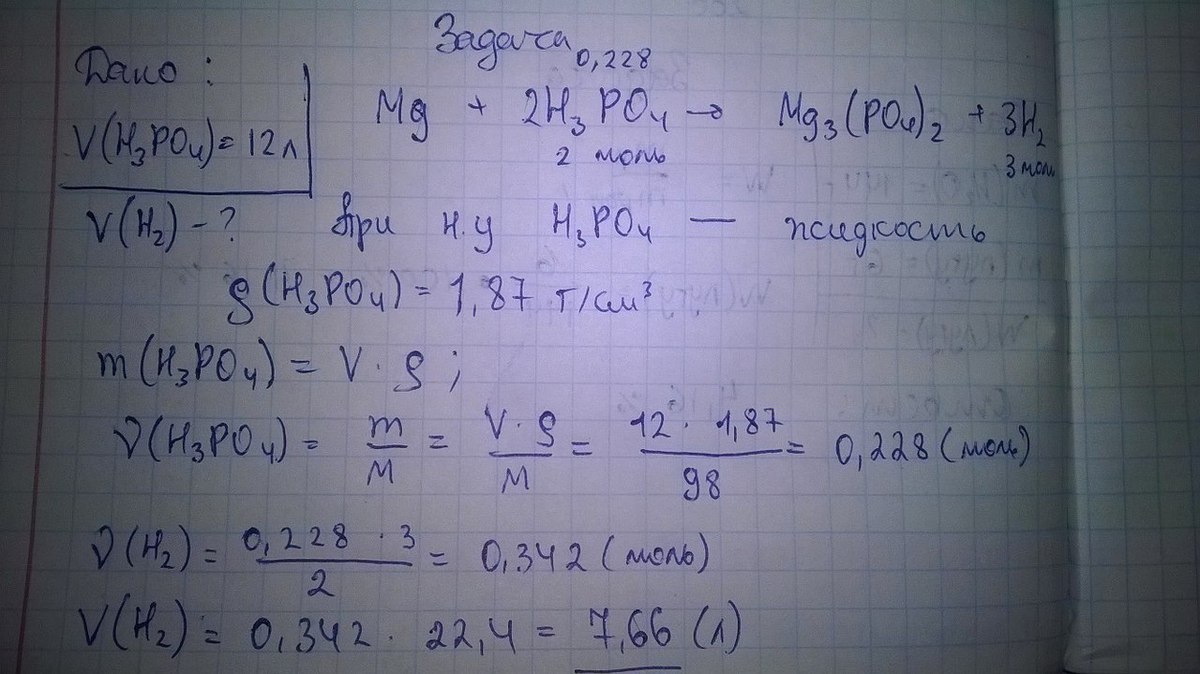 Задача
Дано :
V(H₃PO₄) = 12 л
V(H₂) - ?
0,228
Mg + 2H₃PO₄ → Mg₃(PO₄)₂ + 3H₂
2 моль 3 моль
При н.у H₃PO₄ — жидкость
ρ(H₃PO₄) = 1,87 г/см³
m(H₃PO₄) = V · ρ ;
ν(H₃PO₄) = m/M = V · ρ/M = 12 · 1,87/98 = 0,228 (моль)
ν(H₂) = 0,228 · 3/2 = 0,342 (моль)
V(H₂) = 0,342 · 22,4 = 7,66 (л)